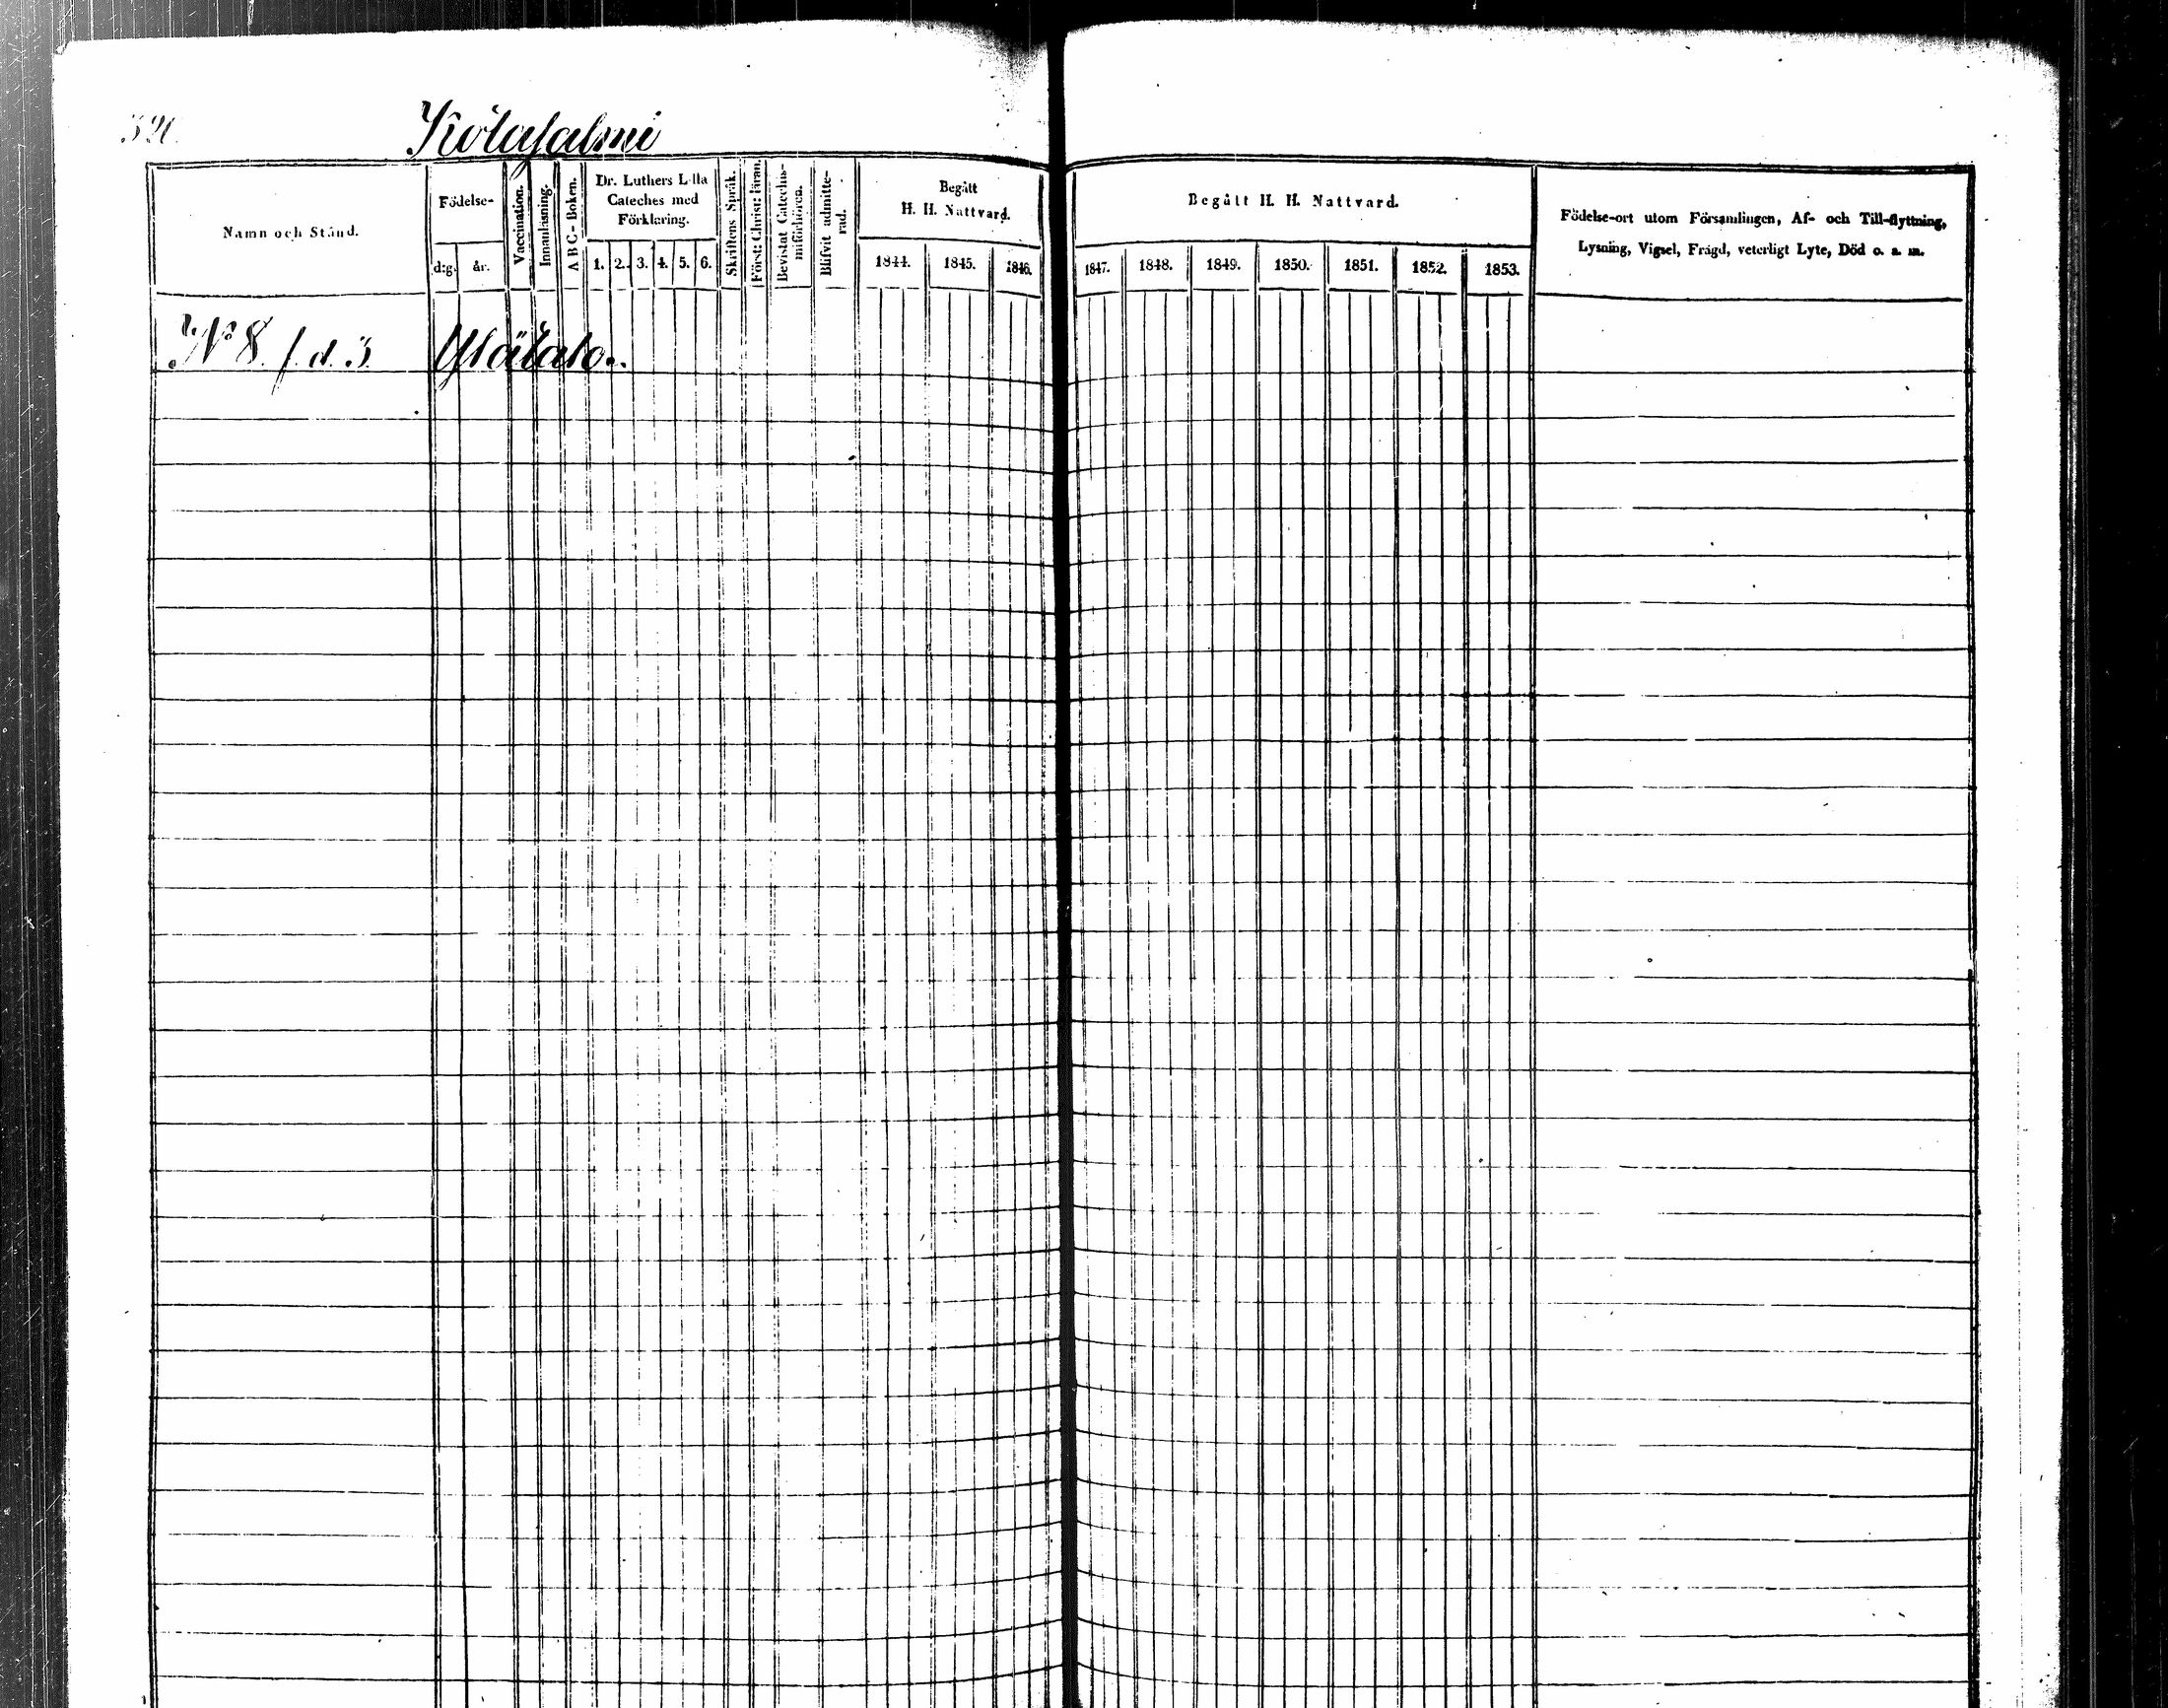 Kotasalmi
Namn och Stånd.
Födelse-
d:g.
år.
Vaccination.
Innanläsning.
A B C - Boken.
Dr. Luthers Lilla
Cateches med
Förklaring.
1. 2. 3. 4. 5. 6.
Skriftens Språk.
Först: Christ: läran.
Bevistat Catechis-
miförhören.
Blifvit admitte-
rad.
Begått
H. H. Nattvard.
1844. 1845. 1846.
Begått H. H. Nattvard.
1847. 1848. 1849. 1850. 1851. 1852. 1853.
Födelse-ort utom Församlingen, Af- och Till-flyttning,
Lysning, Vigsel, Frägd, veterligt Lyte, Död o. s. m.
No 8 f. d. 3. Ylätalo.